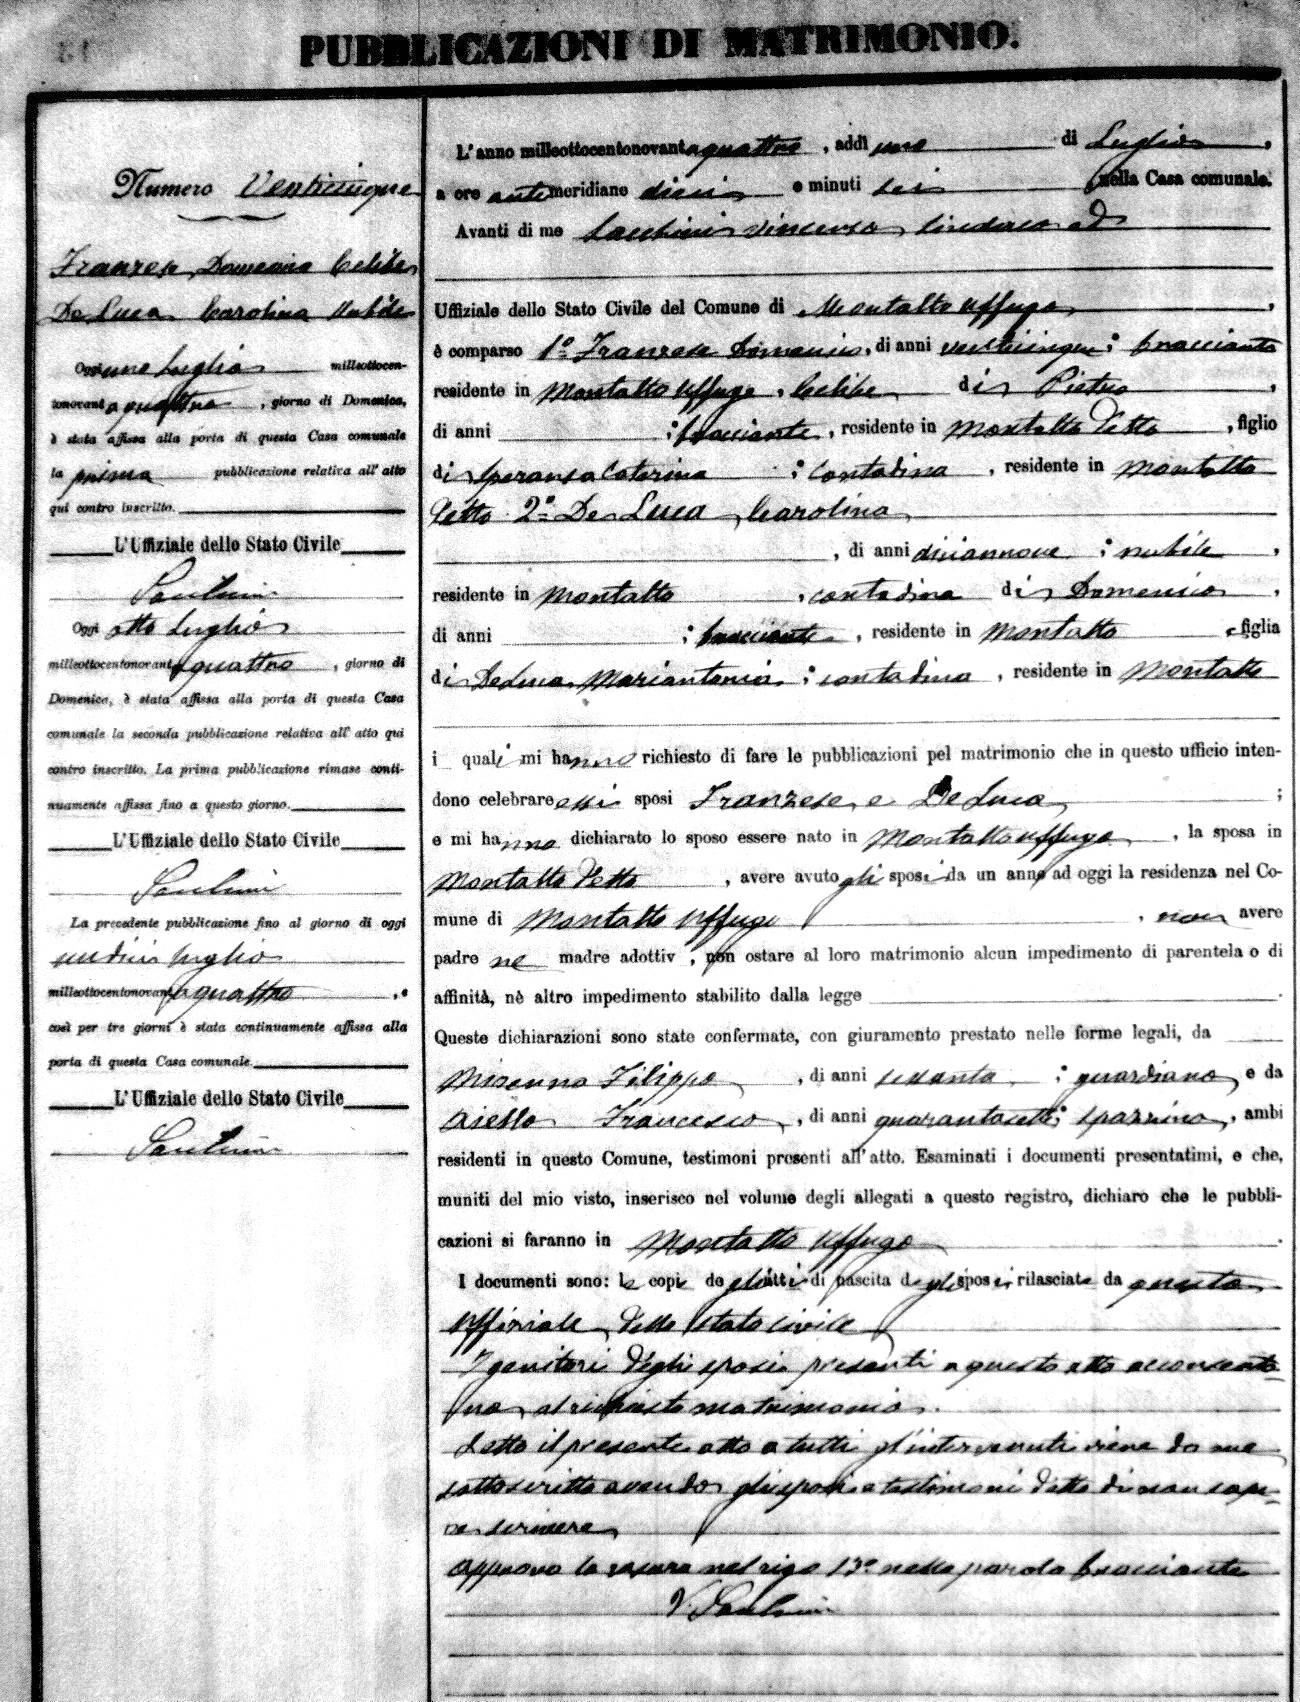 PUBBLICAZIONI DI MATRIMONIO.
Numero Venticinque
Franzese Domenico Celibe
De Luca Carolina Nubile
Oggi uno Luglio milleottocen-
tonovantaquattro, giorno di Domenica,
è stata affissa alla porta di questa Casa comunale
la prima pubblicazione relativa all'atto
qui contro inscritto.
L'Uffiziale dello Stato Civile
Oggi otto Luglio
milleottocentonovantaquattro, giorno di
Domenica, è stata affissa alla porta di questa Casa
comunale la seconda pubblicazione relativa all'atto qui
contro inscritto. La prima pubblicazione rimase conti-
nuamente affissa fino a questo giorno.
L'Uffiziale dello Stato Civile
La precedente pubblicazione fino al giorno di oggi
undici Luglio
milleottocentonovantaquattro, e
così per tre giorni è stata continuamente affissa alla
porta di questa Casa comunale.
L'Uffiziale dello Stato Civile
L'anno milleottocentonovantaquattro, addì uno di Luglio,
a ore antimeridiane dieci e minuti sei, nella Casa comunale.
Avanti di me Vincenzo Sindaco ed
Uffiziale dello Stato Civile del Comune di Montalto Uffugo,
è comparso 1º Franzese Domenico, di anni venticinque; bracciante
residente in Montalto Uffugo, Celibe di Pietro,
di anni ; bracciante, residente in Montalto detto, figlio
di Speranza Caterina; contadina, residente in Montalto
detto 2º De Luca Carolina
, di anni diciannove; nubile,
residente in Montalto, contadina di Domenico,
di anni ; bracciante, residente in Montalto, figlia
di Deluca Mariantonia; contadina, residente in Montalto
i quali mi hanno richiesto di fare le pubblicazioni pel matrimonio che in questo ufficio inten-
dono celebrare essi sposi Franzese e De Luca;
e mi hanno dichiarato lo sposo essere nato in Montalto Uffugo, la sposa in
Montalto detto, avere avuto gli sposi da un anno ad oggi la residenza nel Co-
mune di Montalto Uffugo, non avere
padre ne madre adottiv, non ostare al loro matrimonio alcun impedimento di parentela o di
affinità, nè altro impedimento stabilito dalla legge.
Queste dichiarazioni sono state confermate, con giuramento prestato nelle forme legali, da
Filippo, di anni sessanta; guardiano, e da
Aiello Francesco, di anni quarantasette; spazzino, ambi
residenti in questo Comune, testimoni presenti all'atto. Esaminati i documenti presentatimi, e che,
muniti del mio visto, inserisco nel volume degli allegati a questo registro, dichiaro che le pubbli-
cazioni si faranno in Montalto Uffugo.
I documenti sono: le copie degli atti di nascita degli sposi rilasciate da questo
Uffiziale dello stato civile
I genitori degli sposi presenti a questo atto acconsento-
no al richiesto matrimonio.
Letto il presente atto a tutti gl'intervenuti viene da me
sottoscritto avendo gli sposi e testimoni detto di non sape-
re scrivere
Approvo la rasura nel rigo 13º nella parola bracciante